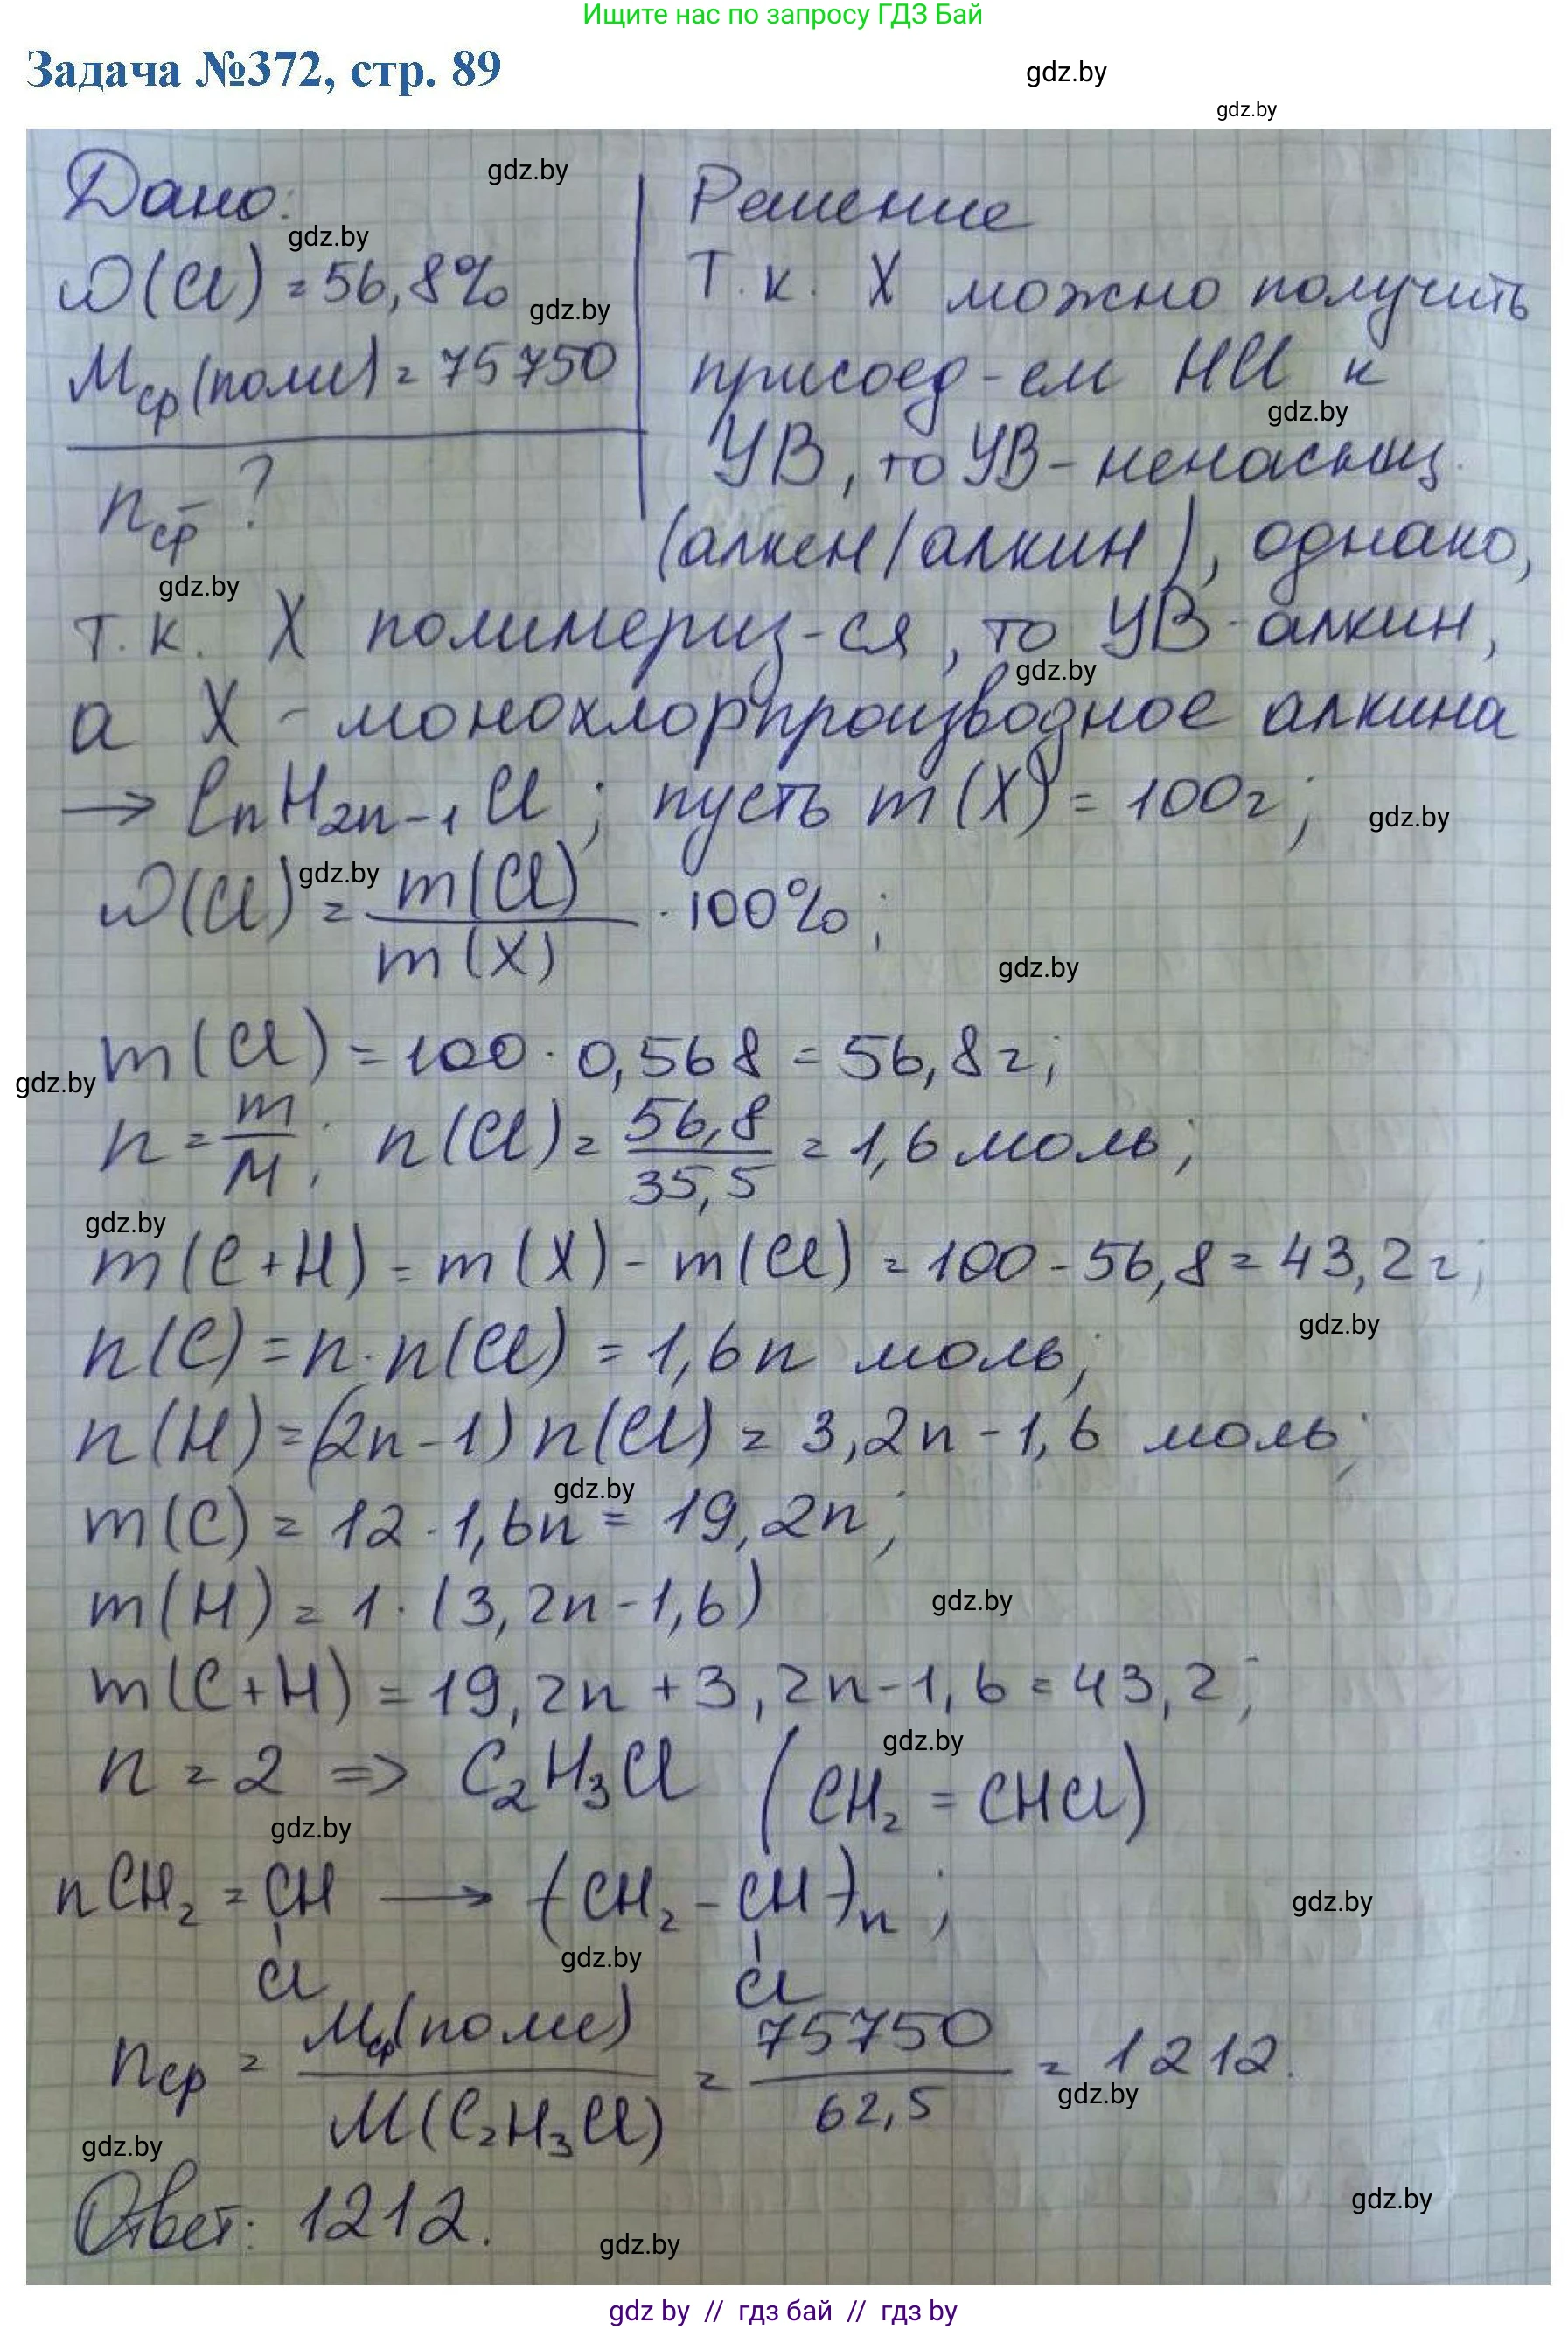 Ищите нас по запросу ГДЗ Бай
Задача №372, стр. 89
gdz.by
gdz.by
Дано:
gdz.by
Решение
gdz.by
ω(Cl) = 56,8%
gdz.by
Т.к. X можно получить
Mср(полие) = 75750
присоед-ем HCl к
gdz.by
УВ, то УВ - ненасыщ.
nср - ?
(алкен/алкин), однако,
gdz.by
т.к. X полимериз-ся, то УВ - алкин,
gdz.by
а X - монохлорпроизводное алкина
→ CnH2n-1Cl; пусть m(X) = 100г;
gdz.by
ω(Cl) = m(Cl) / m(X) · 100%;
gdz.by
gdz.by
m(Cl) = 100 · 0,568 = 56,8г;
gdz.by
n = m/M; n(Cl) = 56,8/35,5 = 1,6 моль;
gdz.by
m(C+H) = m(X) - m(Cl) = 100 - 56,8 = 43,2г;
gdz.by
n(C) = n · n(Cl) = 1,6n моль;
n(H) = (2n-1) n(Cl) = 3,2n - 1,6 моль;
gdz.by
m(C) = 12 · 1,6n = 19,2n;
m(H) = 1 · (3,2n - 1,6)
gdz.by
m(C+H) = 19,2n + 3,2n - 1,6 = 43,2;
gdz.by
n = 2 => C2H3Cl (CH2 = CHCl)
gdz.by
nCH2 = CH → (CH2 - CH)n;
gdz.by
gdz.by
Cl Cl
nср = Mср(полие) / M(C2H3Cl) = 75750 / 62,5 = 1212.
gdz.by
gdz.by
Ответ: 1212.
gdz.by
gdz.by
gdz by // гдз бай // гдз by